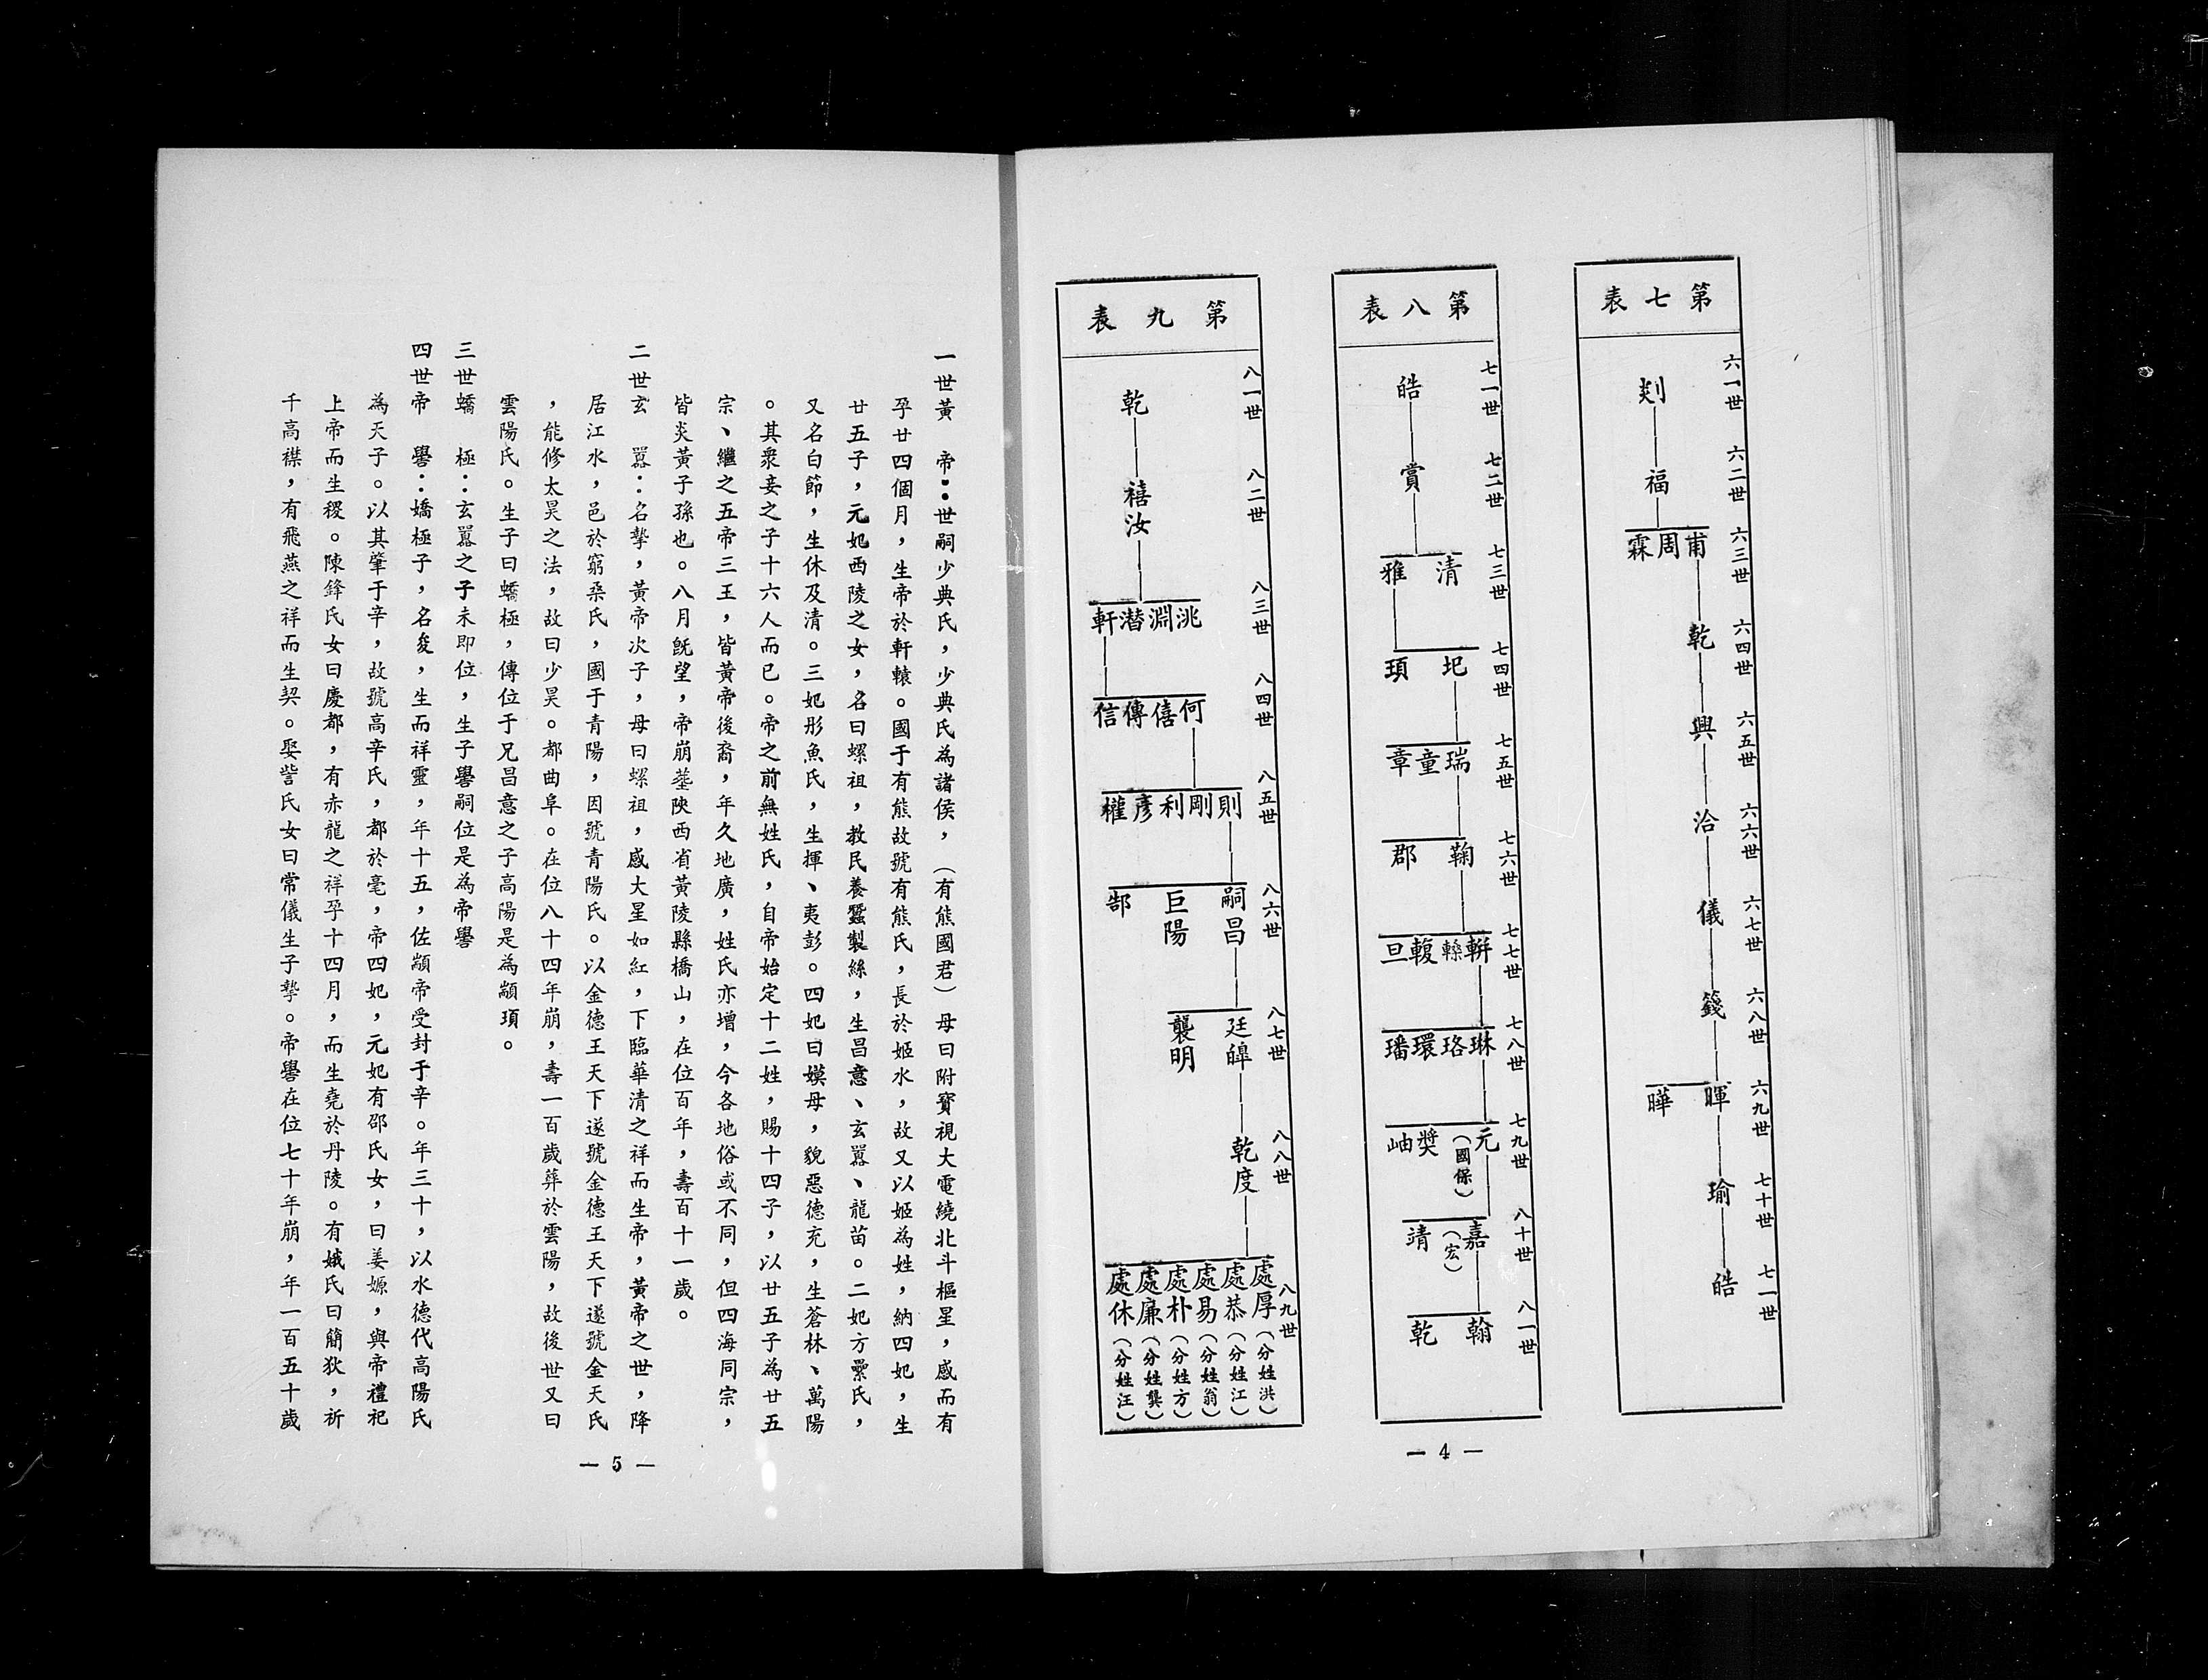 第七表
六一世 剡
六二世 福
六三世 甫周霖
六四世 乾
六五世 興
六六世 洽
六七世 儀
六八世 籛
六九世 暉 曄
七十世 瑜
七一世 皓
第八表
七一世 皓
七二世 賞
七三世 清 雅
七四世 圯 頊
七五世 瑞童章
七六世 鞠 郡
七七世 輧轅輹旦
七八世 琳珞環璠
七九世 元(國保)奬岫
八十世 嘉(宏)靖
八一世 翰 乾
第九表
八一世 乾
八二世 禧汝
八三世 洮淵潛軒
八四世 何僖傳信
八五世 則剛利彥權
八六世 嗣昌 巨陽 郜
八七世 廷皡 襲明
八八世 乾度
八九世
處厚(分姓洪)
處恭(分姓江)
處易(分姓翁)
處朴(分姓方)
處廉(分姓龔)
處休(分姓汪)
— 4 —
一世黃　帝：世嗣少典氏，少典氏為諸侯，（有熊國君）母曰附寶視大電繞北斗樞星，感而有
孕廿四個月，生帝於軒轅。國于有熊故號有熊氏，長於姬水，故又以姬為姓，納四妃，生
廿五子，元妃西陵之女，名曰螺祖，教民養蠶製絲，生昌意、玄囂、龍苗。二妃方纍氏，
又名白節，生休及清。三妃彤魚氏，生揮、夷彭。四妃曰嫫母，貌惡德充，生蒼林、萬陽
。其衆妾之子十六人而已。帝之前無姓氏，自帝始定十二姓，賜十四子，以廿五子為廿五
宗、繼之五帝三王，皆黃帝後裔，年久地廣，姓氏亦增，今各地俗或不同，但四海同宗，
皆炎黃子孫也。八月旣望，帝崩塟陝西省黃陵縣橋山，在位百年，壽百十一歲。
二世玄　囂：名摯，黃帝次子，母曰螺祖，感大星如紅，下臨華清之祥而生帝，黃帝之世，降
居江水，邑於窮桑氏，國于青陽，因號青陽氏。以金德王天下遂號金德王天下遂號金天氏
，能修太昊之法，故曰少昊。都曲阜。在位八十四年崩，壽一百歲葬於雲陽，故後世又曰
雲陽氏。生子曰蟜極，傳位于兄昌意之子高陽是為顓頊。
三世蟜　極：玄囂之子未即位，生子嚳嗣位是為帝嚳
四世帝　嚳：嬌極子，名夋，生而祥靈，年十五，佐顓帝受封于辛。年三十，以水德代高陽氏
為天子。以其肇于辛，故號高辛氏，都於亳，帝四妃，元妃有邵氏女，曰姜嫄，與帝禮祀
上帝而生稷。陳鋒氏女曰慶都，有赤龍之祥孕十四月，而生堯於丹陵。有娥氏曰簡狄，祈
千高禖，有飛燕之祥而生契。娶訾氏女曰常儀生子摯。帝嚳在位七十年崩，年一百五十歲
— 5 —